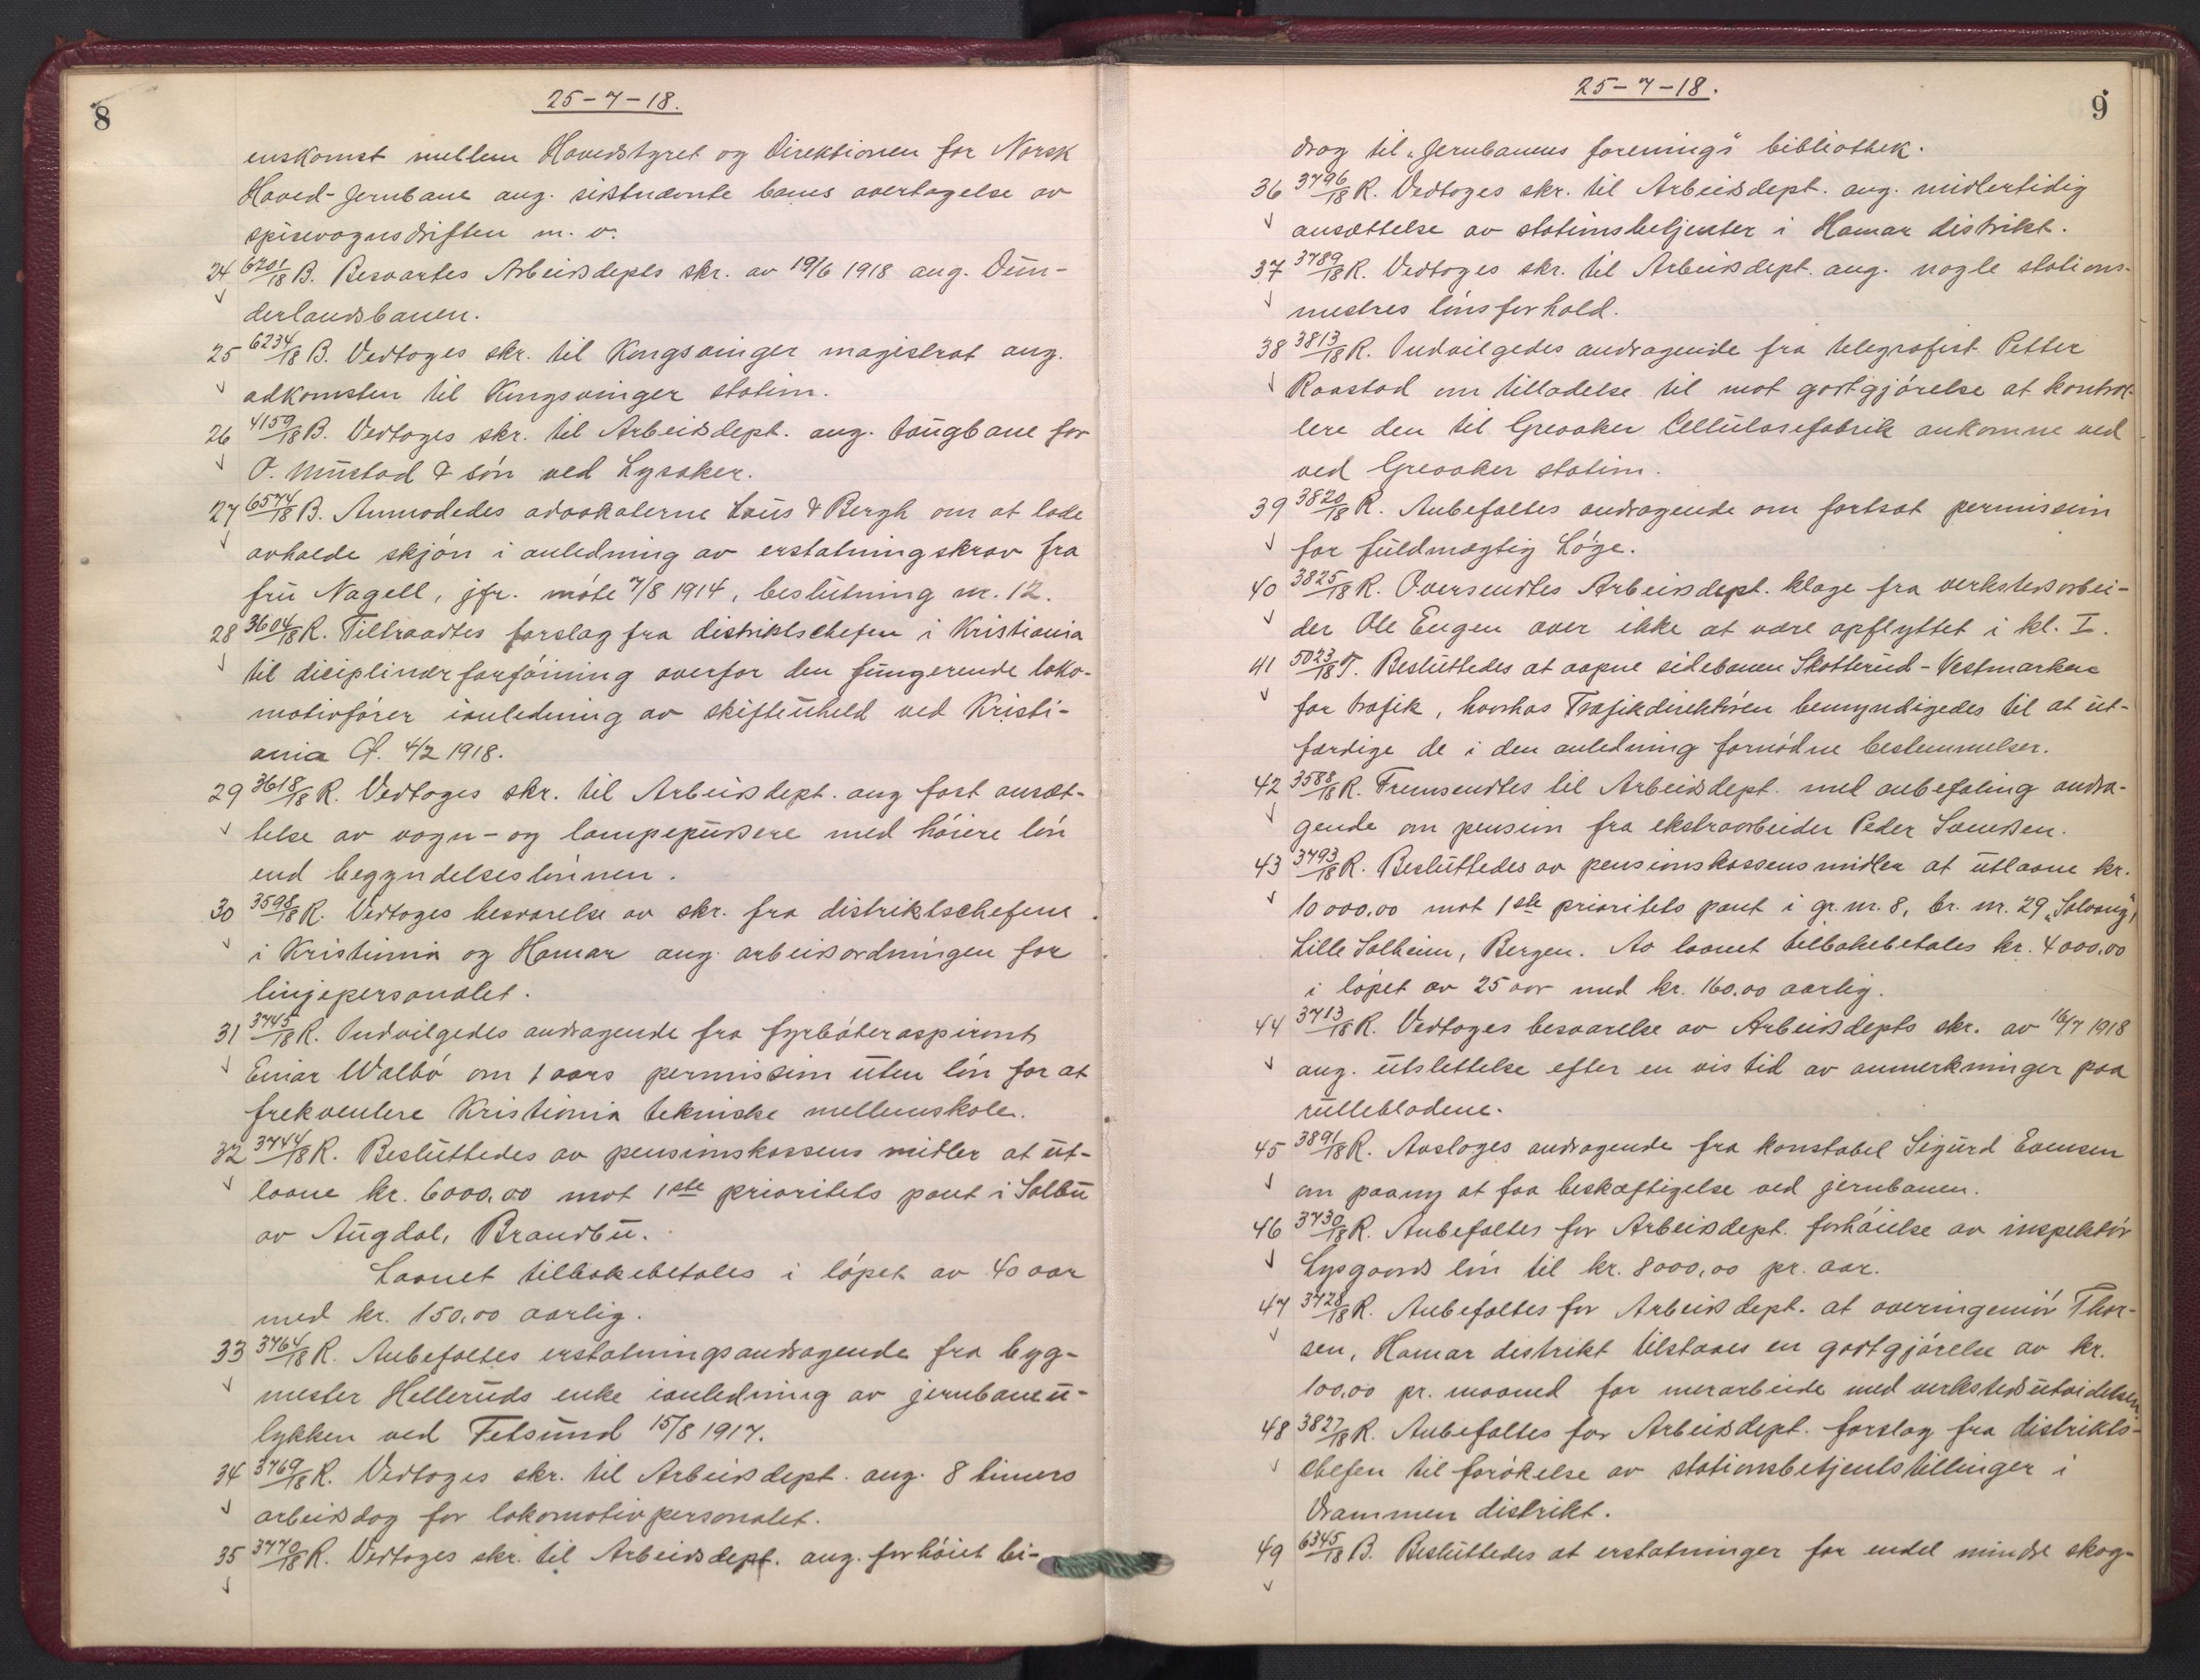 8
25-7-18.
enskomst mellem Hovedstyret og Direktionen for Norsk
Hoved-Jernbane ang. sistnævnte banes overtagelse av
spisevognsdriften m. v.
24 6201/18 B. Besvartes Arbeidsdepts skr. av 19/6 1918 ang. Dun-
derlandsbanen.
25 6234/18 B. Vedtoges skr. til Kongsvinger magistrat ang.
adkomsten til Kongsvinger station.
26 4159/18 B. Vedtoges skr. til Arbeidsdept. ang. taugbane for
O. Mustad & søn ved Lysaker.
27 6574/18 B. Anmodedes advokaterne Lous & Bergh om at lade
avholde skjøn i anledning av erstatningskrav fra
fru Nagell, jfr. møte 7/8 1914, beslutning nr. 12.
28 3604/18 R. Tiltraadtes forslag fra distriktschefen i Kristiania
til diciplinærforføining overfor den fungerende loko-
motivfører ianledning av skifteuheld ved Kristi-
ania Ø. 4/2 1918.
29 3618/18 R. Vedtoges skr. til Arbeidsdept. ang fast ansæt-
telse av vogn- og lampepussere med høiere løn
end begyndelseslønnen.
30 3598/18 R. Vedtoges besvarelse av skr. fra distriktschefene
i Kristiania og Hamar ang. arbeidsordningen for
linjepersonalet.
31 3745/18 R. Indvilgedes andragende fra fyrbøteraspirant
Einar Walbø om 1 aars permission uten løn for at
frekventere Kristiania tekniske mellemskole.
32 3744/18 R. Besluttedes av pensionskassens midler at ut-
laane kr. 6000,00 mot 1ste prioritets pant i Solbu
av Augdal, Brandbu.
Laanet tilbakebetales i løpet av 40 aar
med kr. 150,00 aarlig.
33 3764/18 R. Anbefaltes erstatningsandragende fra byg-
mester Helleruds enke ianledning av jernbaneu-
lykken ved Fetsund 15/8 1917.
34 3769/18 R. Vedtoges skr. til Arbeidsdept. ang. 8 timers
arbeidsdag for lokomotivpersonalet.
35 3770/18 R. Vedtoges skr. til Arbeidsdept. ang. forhøiet bi-
9
25-7-18.
drag til „Jernbanens forenings" bibliothek.
36 3796/18 R. Vedtoges skr. til Arbeidsdept. ang. midlertidig
ansættelse av stationsbetjenter i Hamar distrikt.
37 3789/18 R. Vedtoges skr. til Arbeidsdept. ang. nogle stations-
mestres lønsforhold.
38 3813/18 R. Indvilgedes andragende fra telegrafist Petter
Raastad om tilladelse til mot godtgjørelse at kontrol-
lere den til Greaaker Cellulosefabrik ankomne ved
ved Greaaker station.
39 3820/18 R. Anbefaltes andragende om fortsat permission
for fuldmægtig Løge.
40 3825/18 R. Oversendtes Arbeidsdept. klage fra verkstedsarbei-
der Ole Engen over ikke at være opflyttet i kl. I.
41 5023/18 T. Besluttedes at aapne sidebanen Skotterud-Vestmarken
for trafik, hvorhos Trafikdirektøren bemyndigedes til at ut-
færdige de i den anledning fornødne bestemmelser.
42 3588/18 R. Fremsendtes til Arbeidsdept. med anbefaling andra-
gende om pension fra ekstraarbeider Peder
43 3793/18 R. Besluttedes av pensionskassens midler at utlaane kr.
10 000,00 mot 1ste prioritets pant i gr. nr. 8, br. nr. 29 „Solvang",
Lille Solheim, Bergen. Av laanet tilbakebetales kr. 4000,00
i løpet av 25 aar med kr. 160,00 aarlig.
44 3713/18 R. Vedtoges besvarelse av Arbeidsdepts skr. av 16/7 1918
ang. utslettelse efter en vis tid av anmerkninger paa
rullebladene.
45 3891/18 R. Avsloges andragende fra konstabel Sigurd Evensen
om paany at faa beskæftigelse ved jernbanen.
46 3730/18 R. Anbefaltes for Arbeidsdept. forhøielse av inspektør
Lysgaards løn til kr. 8000,00 pr. aar.
47 3728/18 R. Anbefaltes for Arbeidsdept. at overingeniør Thor-
sen, Hamar distrikt tilstaaes en godtgjørelse av kr.
100,00 pr. maaned for merarbeide med verkstedsutvidelsen.
48 3827/18 R. Anbefaltes for Arbeidsdept. forslag fra distrikts-
chefen til forøkelse av stationsbetjentstillinger i
Drammen distrikt.
49 6345/18 B. Besluttedes at erstatninger for endel mindre skog-